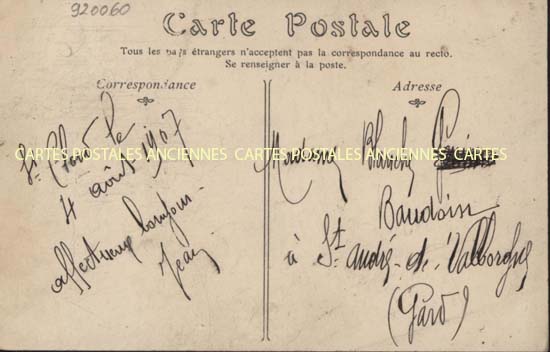 920060
Carte Postale
Tous les pays étrangers n'acceptent pas la correspondance au recto.
Se renseigner à la poste.
Correspondance
Adresse
4 août 1907
affectueux bonjour
Jean
CARTES POSTALES ANCIENNES CARTES POSTALES ANCIENNES CARTES
Baudoin
à St. André-de-Valborgne
(Gard)